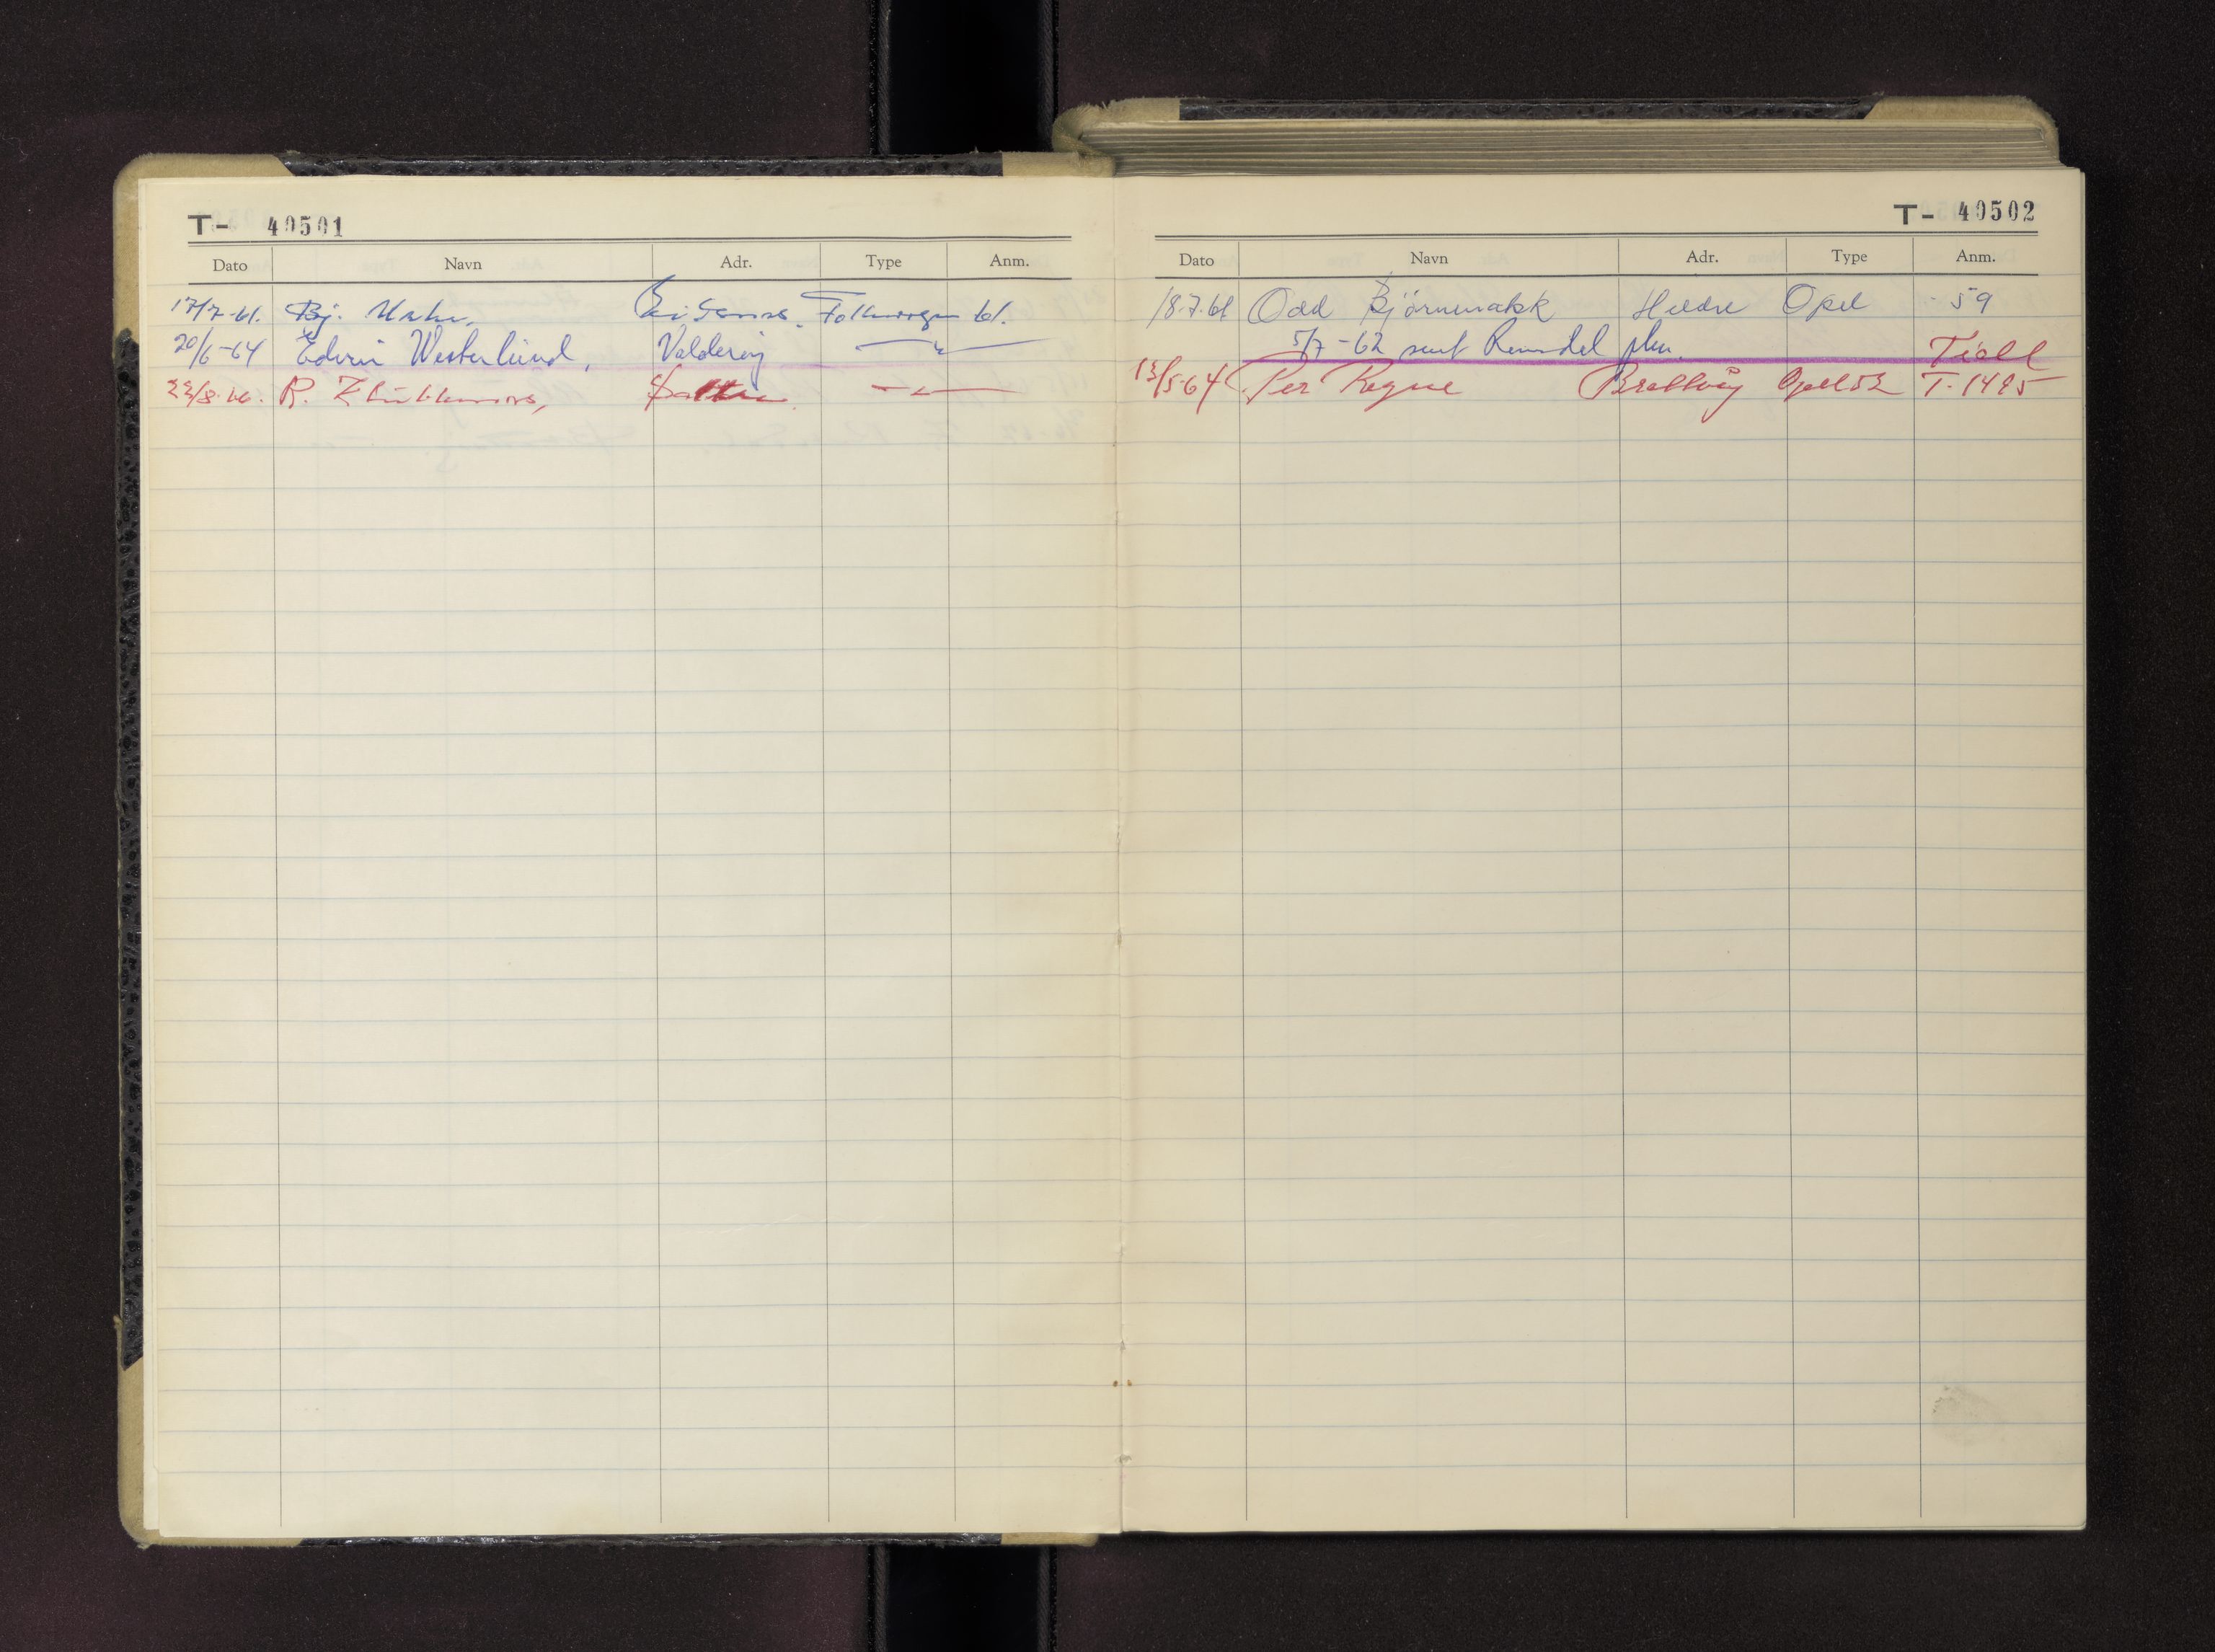 T- 40501
Dato Navn Adr. Type Anm.
17/7-61. Bj. Folkevogn 61.
20/6-64 Edvin Westerlund, Valderøy
22/8-66. R.
T- 40502
Dato Navn Adr. Type Anm.
18.7.61 Odd Björnenakk Hildre Opel - 59
5/7-62 sent Romsdal pkm. Tidl
13/5-64 Per Rogne Brattvåg Opel 52 T-1495